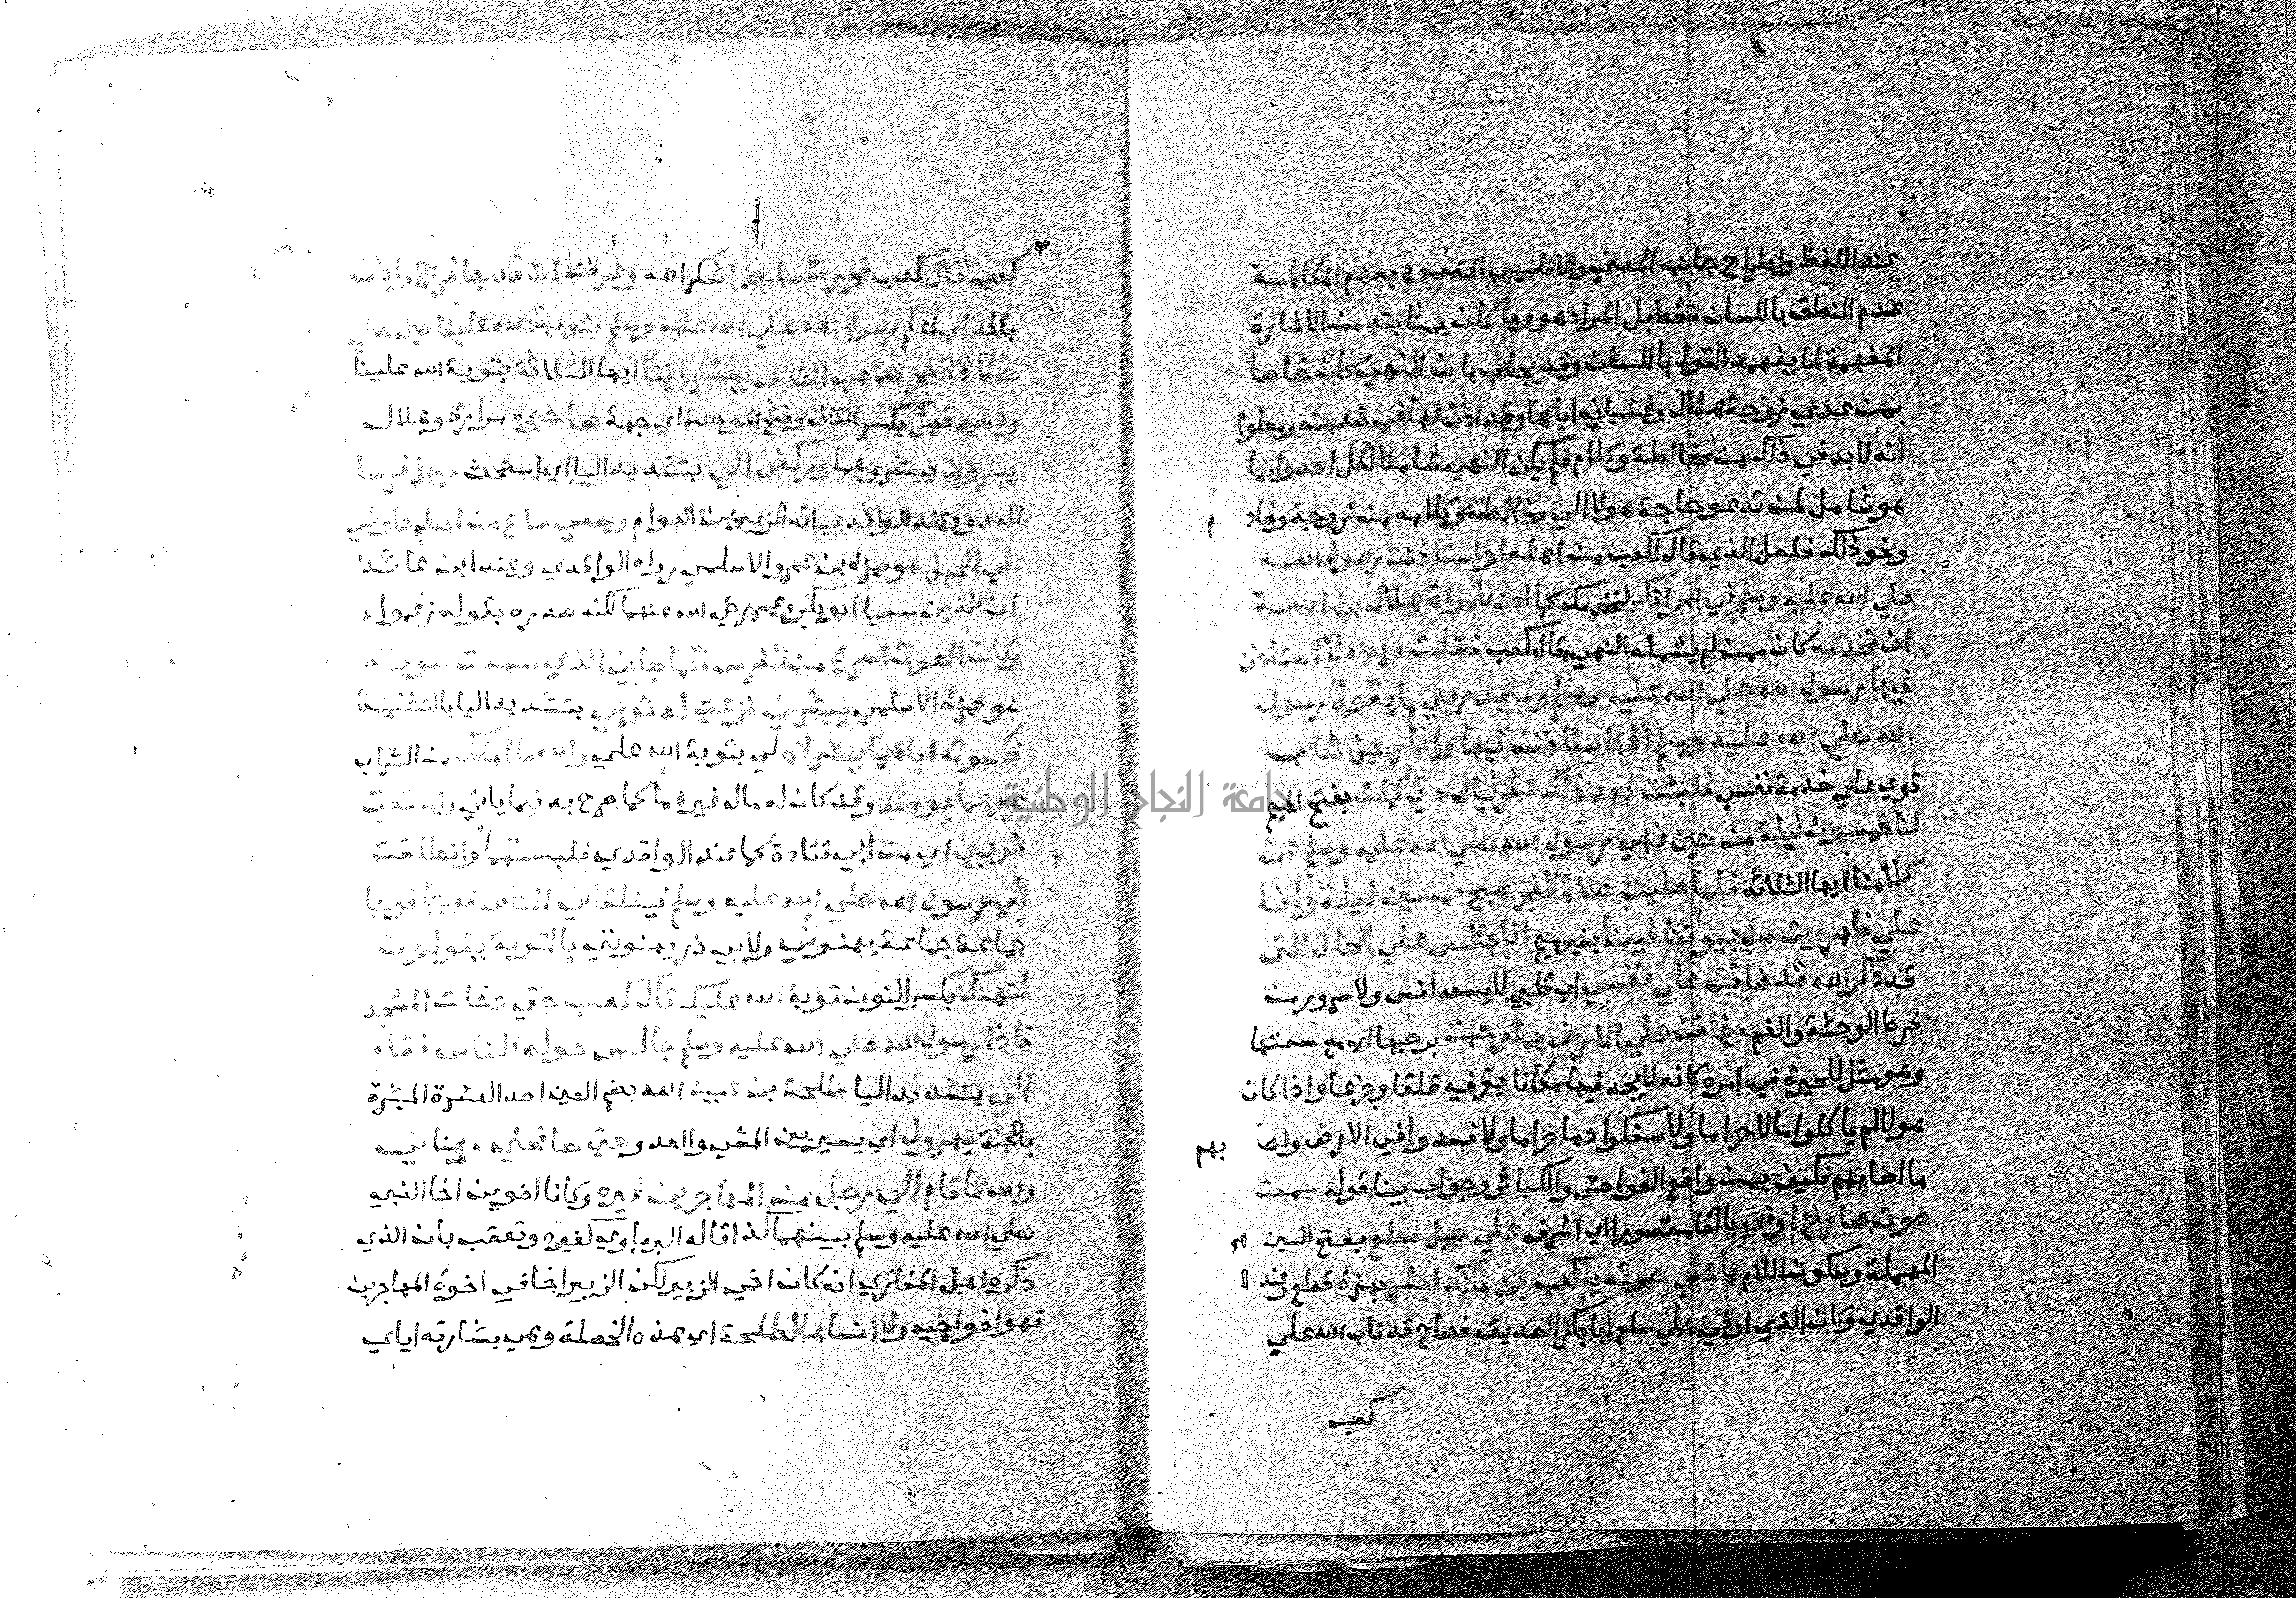 عند اللفظ واطراح جانب المعني والا فليس المقصود بعدم المكالمة
عدم النطق باللسان فقط بل المراد هو وما كان بمثابته من الاشارة
المفهمة لما يفهمه القول باللسان وقد يجاب بان النهي كان خاصا
بمن عدي زوجة هلال وغشيانه اياها وقد اذن لها في خدمته ومعلوم
انه لا بد في ذلك من مخالطة وكلام فلم يكن النهي شاملا لكل احد وانما
هو شامل لمن تدعو حاجة هولا الي مخالطته وكلامه من زوجة وخاد م
ونحو ذلك فلعل الذي قال لكعب من اهله لو استاذنت رسول الله
صلي الله عليه وسلم في امراتك لتخدمك كما اذن لامراة هلال بن امية
ان تخدمه كان ممن لم يشمله النهي قال كعب فقلت والله لا استاذن
فيها رسول الله صلي الله عليه وسلم وما يدريني ما يقول رسول
الله صلي الله عليه وسلم اذا استاذنته فيها وانا رجل شاب
قوي علي خدمة نفسي فلبثت بعد ذلك عشر ليال حتي كملت بفتح الميم
لنا خمسون ليلة من حين نهي رسول الله صلي الله عليه وسلم عن
كلامنا ايها الثلاثه فلما صليت صلاة الفجر صبح خمسين ليلة وانا
علي ظهر بيت من بيوتنا فبينا بغير ميم انا جالس علي الحال التي
قد ذكر الله قد ضاقت علي نفسي اي قلبي لا يسعه انس ولا سرور من
فرط الوحشة والغم وضاقت علي الارض بما رحبت برحبها اي مع سعتها
وهو مثل للحيرة في امره كانه لا يجد فيها مكانا يقر فيه قلقا وجزعا واذا كان
هولا لم ياكلوا مالا حراما ولا سفكوا دما حراما ولا افسدوا في الارض واصا بهم
ما اصابهم فكيف بمن واقع الفواحش والكبائر وجواب بينا قوله سمعت
صوت صارخ اوفي بالفا مقصورا اي اشرف علي جبل سلع بفتح السين
المهملة وسكون اللام باعلي صوته يا كعب بن مالك ابشر بهمزة قطع وعند
الواقدي وكان الذي اوفي علي سلع ابا بكر الصديق فصاح قد تاب الله علي
كعب
كعب قال كعب فخررت ساجدا شكرا لله وعرفت ان قد جا فرج واذن
بالمد اي اعلم رسول الله صلي الله عليه وسلم بتوبة الله علينا حين صلي
صلاة الفجر فذهب الناس يبشروننا ايها الثلاثة بتوبة الله علينا
وذهب قبل بكسر القاف وفتح الموحدة اي جهة صاحبي مرارة وهلال
مبشرون يبشرونهما وركض الي بتشديد اليا اي استحث رجل فرسا
للعدو وعند الواقدي انه الزبير بن العوام وسعي ساع من اسلم فاوفي
علي الجبل هو حمزة بن عمرو الاسلمي رواه الواقدي وعند ابن عائذ
ان الذين سعيا ابو بكر وعمر رضي الله عنهما لكنه صدره بقوله زعموا
وكان الصوت اسرع من الفرس فلما جاني الذي سمعت صوته
هو حمزة الاسلمي يبشرني نزعت له ثوبي بتشديد اليا بالتثنية
فكسوته اياهما ببشراه لي بتوبة الله علي والله ما املك من الثياب
غيرهما يومئذ وقد كان له مال غيرهما كما صرح به فيما ياتي واستعرت
ثوبين اي من ابي قتادة كما عند الواقدي فلبستهما وانطلقت
الي رسول الله صلي الله عليه وسلم فيتلقاني الناس فوجا فوجا
جماعة جماعة يهنوني ولابي ذر يهنونني بالتوبة يقولون
لتهنك بكسر النون توبة الله عليك قال كعب حتي دخلت المسجد
فاذا رسول الله صلي الله عليه وسلم جالس حوله الناس فقام
الي بتشديد اليا طلحة بن عبيد الله بضم العين احد العشرة المبشرة
بالجنة يهرول اي يسير بين المشي والعدو حتي صافحني وهناني
والله ما قام الي رجل من المهاجرين غيره وكانا اخوين اخا النبي
صلي الله عليه وسلم بينهما كذا قاله البرماوي كغيره وتعقب بان الذي
ذكره اهل المغازي انه كان اخي الزبير لكن الزبير اخا في اخوة المهاجرين
فهو اخو اخيه ولا انساها لطلحة اي هذه الخصلة وهي بشارته اياي
جامعة النجاح الوطنية